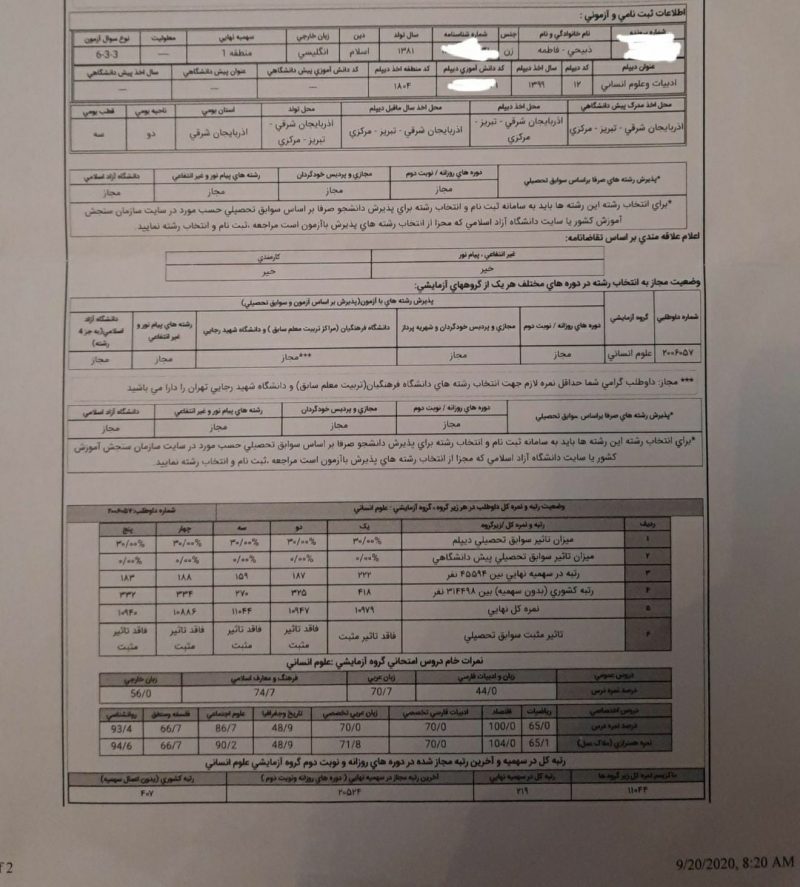 اطلاعات ثبت نامي و آزموني :
شماره پرونده نام خانوادگي و نام جنس شماره شناسنامه سال تولد دين زبان خارجي سهميه نهايي معلوليت نوع سوال آزمون
ذبيحي - فاطمه زن ۱۳۸۱ اسلام انگليسي منطقه 1 --- 6-3-3
عنوان ديپلم کد ديپلم سال اخذ ديپلم کد دانش آموزي ديپلم کد منطقه اخذ ديپلم کد دانش آموزي پيش دانشگاهي عنوان پيش دانشگاهي سال اخذ پيش دانشگاهي
ادبيات وعلوم انساني ۱۲ ۱۳۹۹ ۱۸۰۴ --- --- ---
محل اخذ مدرک پيش دانشگاهي محل اخذ ديپلم محل اخذ سال ماقبل ديپلم محل تولد استان بومي ناحيه بومي قطب بومي
آذربايجان شرقي - تبريز - مرکزي آذربايجان شرقي - تبريز - مرکزي آذربايجان شرقي - تبريز - مرکزي آذربايجان شرقي - تبريز - مرکزي آذربايجان شرقي دو سه
*پذيرش رشته هاي صرفا براساس سوابق تحصيلي دوره هاي روزانه / نوبت دوم مجازي و پرديس خودگردان رشته هاي پيام نور و غير انتفاعي دانشگاه آزاد اسلامي
مجاز مجاز مجاز مجاز
*براي انتخاب رشته اين رشته ها بايد به سامانه ثبت نام و انتخاب رشته براي پذيرش دانشجو صرفا بر اساس سوابق تحصيلي حسب مورد در سايت سازمان سنجش
آموزش کشور يا سايت دانشگاه آزاد اسلامي که مجزا از انتخاب رشته هاي پذيرش باآزمون است مراجعه ،ثبت نام و انتخاب رشته نماييد.
اعلام علاقه مندي بر اساس تقاضانامه:
غير انتفاعي - پيام نور کارمندي
خير خير
وضعيت مجاز به انتخاب رشته در دوره هاي مختلف هر يک از گروههاي آزمايشي:
شماره داوطلبي گروه آزمايشي پذيرش رشته هاي با آزمون(پذيرش بر اساس آزمون و سوابق تحصيلي)
دوره هاي روزانه / نوبت دوم مجازي و پرديس خودگردان و شهريه پرداز دانشگاه فرهنگيان (مراکز تربيت معلم سابق ) و دانشگاه شهيد رجايي رشته هاي پيام نور و غير انتفاعي دانشگاه آزاد اسلامي(به جز 4 رشته)
۲۰۰۶۰۵۷ علوم انساني مجاز مجاز ***مجاز مجاز مجاز
*** مجاز: داوطلب گرامي شما حداقل نمره لازم جهت انتخاب رشته هاي دانشگاه فرهنگيان(تربيت معلم سابق) و دانشگاه شهيد رجايي تهران را دارا مي باشيد
*پذيرش رشته هاي صرفا براساس سوابق تحصيلي دوره هاي روزانه / نوبت دوم مجازي و پرديس خودگردان رشته هاي پيام نور و غير انتفاعي دانشگاه آزاد اسلامي
مجاز مجاز مجاز مجاز
*براي انتخاب رشته اين رشته ها بايد به سامانه ثبت نام و انتخاب رشته براي پذيرش دانشجو صرفا بر اساس سوابق تحصيلي حسب مورد در سايت سازمان سنجش آموزش
کشور يا سايت دانشگاه آزاد اسلامي که مجزا از انتخاب رشته هاي پذيرش باآزمون است مراجعه ،ثبت نام و انتخاب رشته نماييد.
وضعيت رتبه و نمره کل داوطلب در هر زير گروه ، گروه آزمايشي : علوم انساني شماره داوطلب: ۲۰۰۶۰۵۷
رديف رتبه و نمره کل /زيرگروه يک دو سه چهار پنج
۱ ميزان تاثير سوابق تحصيلي ديپلم ۳۰/۰۰% ۳۰/۰۰% ۳۰/۰۰% ۳۰/۰۰% ۳۰/۰۰%
۲ ميزان تاثير سوابق تحصيلي پيش دانشگاهي ۰/۰۰% ۰/۰۰% ۰/۰۰% ۰/۰۰% ۰/۰۰%
۳ رتبه در سهميه نهايي بين ۴۵۵۹۴ نفر ۲۲۲ ۱۸۷ ۱۵۹ ۱۸۸ ۱۸۳
۴ رتبه کشوري (بدون سهميه) بين ۳۱۴۴۹۸ نفر ۴۱۸ ۳۲۵ ۲۷۰ ۳۳۴ ۳۳۲
۵ نمره کل نهايي ۱۰۹۷۹ ۱۰۹۴۷ ۱۱۰۴۴ ۱۰۸۸۶ ۱۰۹۴۰
۶ تاثير مثبت سوابق تحصيلي فاقد تاثير مثبت فاقد تاثير مثبت فاقد تاثير مثبت فاقد تاثير مثبت فاقد تاثير مثبت
نمرات خام دروس امتحاني گروه آزمايشي :علوم انساني
دروس عمومي زبان و ادبيات فارسي زبان عربي فرهنگ و معارف اسلامي زبان خارجي
درصد نمره درس 44/0 70/7 74/7 56/0
دروس اختصاصي رياضيات اقتصاد ادبيات فارسي تخصصي زبان عربي تخصصي تاريخ وجغرافيا علوم اجتماعي فلسفه ومنطق روانشناسي
درصد نمره درس 65/0 100/0 70/0 70/0 48/9 86/7 66/7 93/4
نمره همترازي(ملاک عمل) 65/1 104/0 70/0 71/8 48/9 90/2 66/7 94/6
رتبه کل در سهميه و آخرين رتبه مجاز شده در دوره هاي روزانه و نوبت دوم گروه آزمايشي علوم انساني
ماکزيمم نمره کل زير گروه ها رتبه کل در سهميه نهايي آخرين رتبه مجاز در سهميه نهايي ( دوره هاي روزانه ونوبت دوم ) رتبه کشوري (بدون اعمال سهميه)
۱۱۰۴۴ ۲۱۹ ۲۰۵۲۴ ۴۰۷
f 2 9/20/2020, 8:20 AM